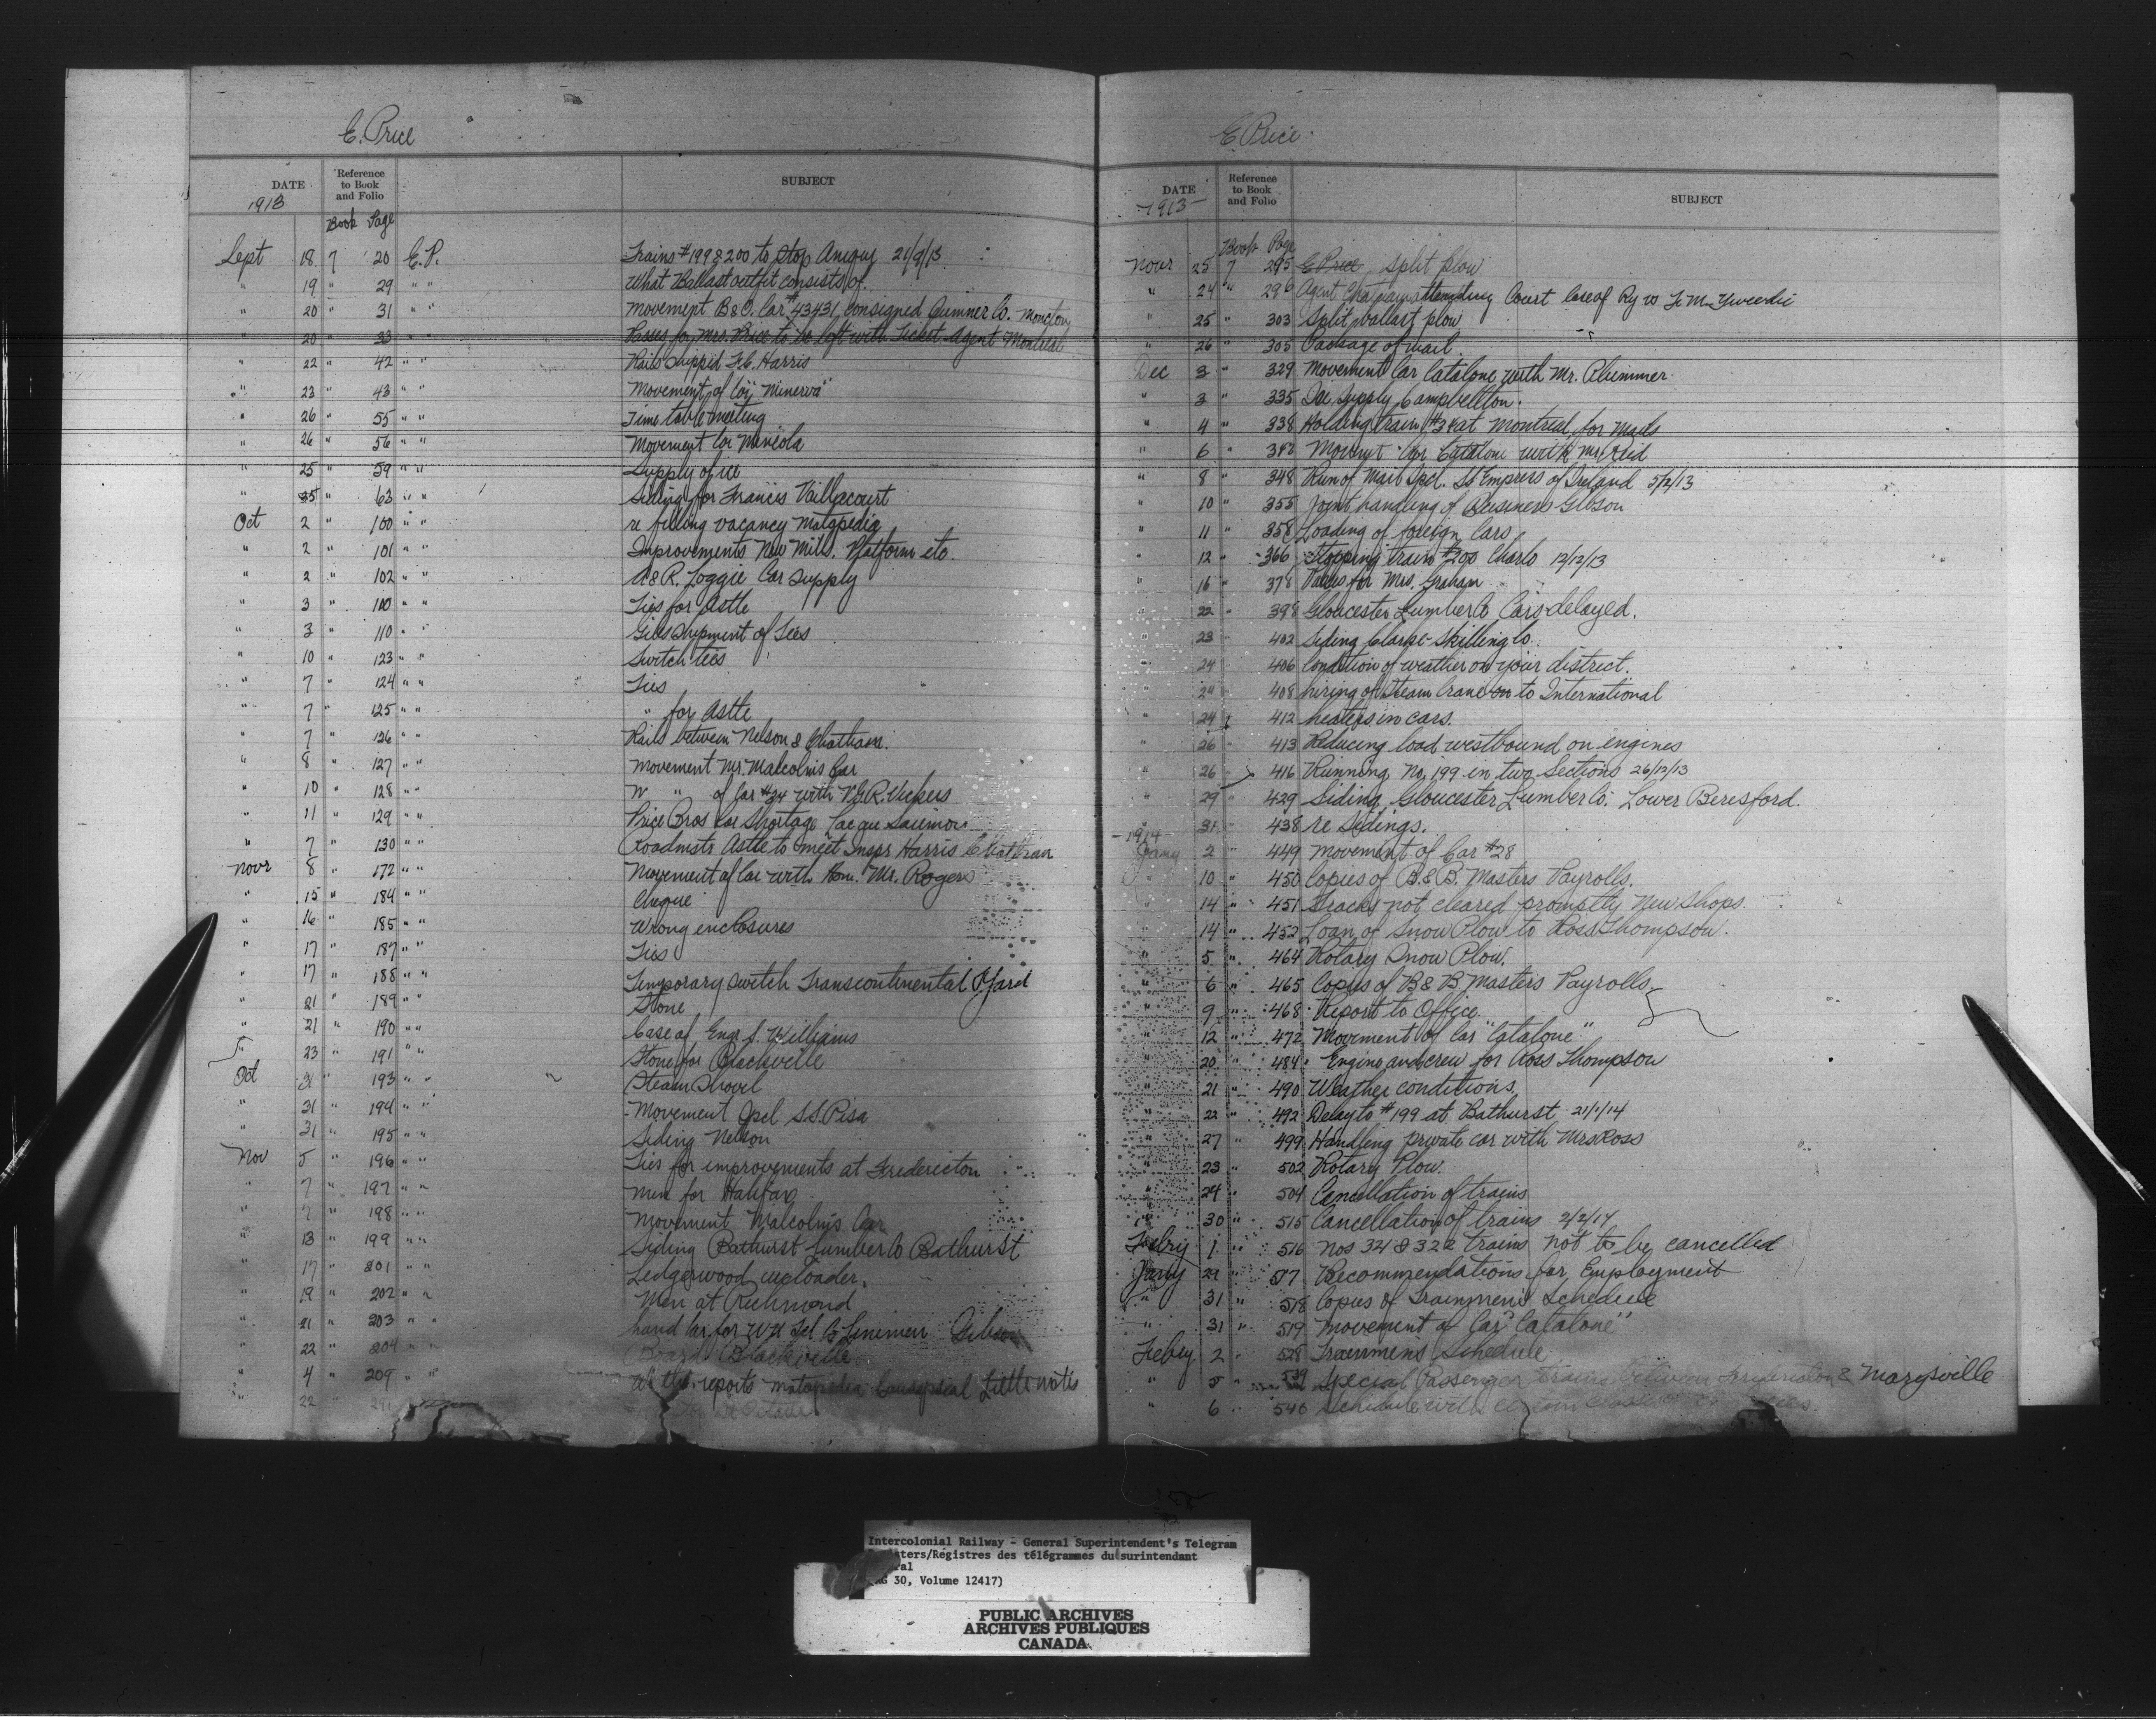 E. Price
DATE
Reference
to Book
and Folio
SUBJECT
1913
Book Page
Sept 18 7 20 E.P. Trains #199 & 200 to stop Amquy 21/9/13
" 19 " 29 " " What Ballast outfit consists of
" 20 " 31 " " Movement B&O. Car #43431 consigned Sumner Co. Moncton
" 20 " 33 " " Passes for Mrs. Price to be left with Ticket Agent Montreal
" 22 " 42 " " Rails shippd Harris
" 23 " 43 " " Movement of Car "Minerva"
" 26 " 55 " " Time table meeting
" 26 " 56 " " Movement Car
" 25 " 59 " " Supply of ice
" 25 " 63 " " Siding for Francis Vaillacourt
Oct 2 " 100 " " re filling vacancy Matapedia
" 2 " 101 " " Improvements New Mills. Platform etc.
" 2 " 102 " " A&R. Loggie Car supply
" 3 " 110 " " Ties for Astle
" 3 " 110 " " shipment of Ties
" 10 " 123 " " Switch ties
" 7 " 124 " " Ties
" 7 " 125 " " " for Astle
" 7 " 126 " " Rails between Nelson & Chatham.
" 8 " 127 " " Movement Mr. Malcolm's Car
" 10 " 128 " " " of Car #34 with V.G.R. Vickers
" 11 " 129 " " Price Bros Car Shortage
" 7 " 130 " " Roadmstr Astle to meet Inspr Harris Chatham
Novr 8 " 172 " " Movement of Car with Hon. Mr. Rogers
" 15 " 184 " " Cheque
" 16 " 185 " " Wrong enclosures
" 17 " 187 " " Ties
" 17 " 188 " " Temporary switch Transcontinental Yard
" 21 " 189 " " Stone
" 21 " 190 " " Case of Engr. J. Williams
" 23 " 191 " " Stone for Blackville
Oct 31 " 193 " " Steam Shovel
" 31 " 194 " " Movement Spcl S.S. Pisa
" 31 " 195 " " Siding Nelson
Nov 5 " 196 " " Ties for improvements at Fredericton
" 7 " 197 " " Men for Halifax
" 7 " 198 " " Movement Malcolm's Car
" 13 " 199 " " Siding Bathurst Lumber Co Bathurst
" 17 " 201 " " Ledgerwood unloader.
" 19 " 202 " " Men at Richmond
" 21 " 203 " " hand Car for W U Tel Co Linemen Gibson
" 22 " 204 " " Board Blackville
" 4 " 209 " " reports Matapedia Causapscal
" 22
E Price
DATE
Reference
to Book
and Folio
SUBJECT
1913
Book Page
Novr 25 7 295 E Price split plow
" 24 " 296 Agent attending Court Case of Ry vs
" 25 " 303 Split ballast plow
" 26 " 305 Package of mail
Dec 3 " 329 Movement Car Catalone with Mr. Plummer
" 3 " 335 Ice supply Campbellton.
" 4 " 338 Holding train #34 at Montreal, for Mails
" 6 " 342 Movemt Car Catalone with Mr Reid
" 8 " 348 Run of Mail Spcl. SS Empress of Ireland 5/12/13
" 10 " 355 Joint handling of Business Gibson
" 11 " 358 Loading of foreign Cars
" 12 " 366 Stopping train #200 Charlo 12/12/13
" 16 " 378 Passes for Mrs. Graham
" 22 " 398 Gloucester Lumber Co Cars delayed.
" 23 " 402 Siding Clarke-Skilling Co.
" 24 " 406 Condition of weather on your district.
" 24 " 408 hiring of Steam Crane on to International
" 24 " 412 heaters in cars.
" 26 " 413 Reducing load westbound on engines
" 26 " 416 Running No. 199 in two Sections 26/12/13
" 29 " 429 Siding Gloucester Lumber Co. Lower Beresford.
" 31 " 438 re Sidings.
1914
Jany 2 " 449 Movement of Car #28
" 10 " 450 Copies of B.&B. Masters Payrolls.
" 14 " 451 Tracks not cleared promptly New Shops.
" 14 " 452 Loan of Snow Plow to Ross Thompson.
" 5 " 464 Rotary Snow Plow.
" 6 " 465 Copies of B&B Masters Payrolls
" 9 " 468 Report to Office.
" 12 " 472 Movement of Car "Catalone"
" 20 " 484 Engine and crew for Ross Thompson
" 21 " 490 Weather conditions
" 22 " 492 Delay to #199 at Bathurst 21/1/14
" 27 " 499 Handling private car with Mrs Ross
" 23 " 502 Rotary Plow.
" 24 " 504 Cancellation of trains
" 30 " 515 Cancellation of trains 2/2/14
Febry 1 " 516 Nos 324 & 322 trains not to be cancelled
Jany 29 " 517 Recommendations for Employment
" 31 " 518 Copies of Trainmen's Schedule
" 31 " 519 Movement of Car "Catalone"
Febry 2 " 528 Trainmen's Schedule
" 5 " 539 Special Passenger trains between Fredericton & Marysville
" 6 " 540 Schedule with
Intercolonial Railway - General Superintendent's Telegram
sters/Registres des télégrammes du surintendant
ral
RG 30, Volume 12417)
PUBLIC ARCHIVES
ARCHIVES PUBLIQUES
CANADA